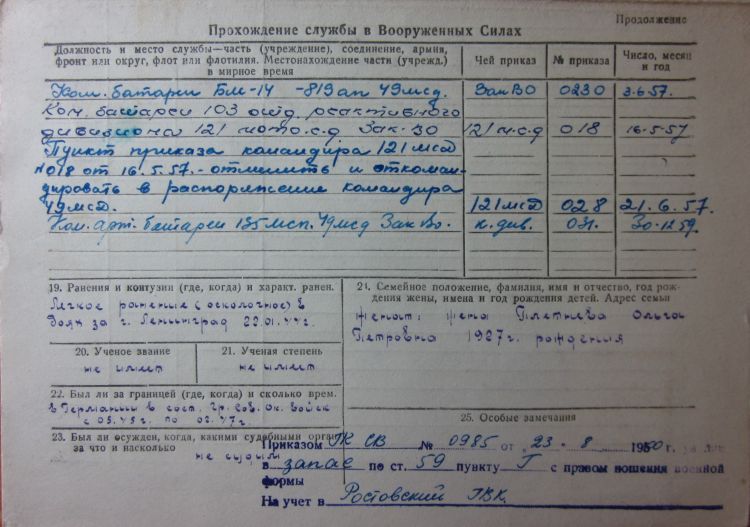 Продолжение
Прохождение службы в Вооруженных Силах
Должность и место службы—часть (учреждение), соединение, армия,
фронт или округ, флот или флотилия. Местонахождение части (учрежд.)
в мирное время
Чей приказ
№ приказа
Число, месяц
и год
Ком. батареи БМ-14 -819 ап 49 мсд ЗакВО 0230 3.6.57.
Ком. батареи 103 отд. реактивного
дивизиона 121 мото.с.д Зак.ВО 121 м.с.д 018 16.5.57
Пункт приказа командира 121 мсд
№018 от 16.5.57.-отменить и откоман-
дировать в распоряжение командира
49мсд. 121мсд 028 21.6.57.
Ком. арт. батареи 135 мсп. 49мсд ЗакВо. к. див. 031. 30.12.59.
19. Ранения и контузии (где, когда) и характ. ранен.
Легкое ранение (осколочное) в
боях за г. Ленинград 22.01.44г.
20. Ученое звание
не имеет
21. Ученая степень
не имеет
22. Был ли за границей (где, когда) и сколько врем.
в Германии в сост. Гр. Сов. Ок. Войск
с 05.45г. по 02.47г.
23. Был ли осужден, когда, какими судебными орган.
за что и насколько
не судим
24. Семейное положение, фамилия, имя и отчество, год рож-
дения жены, имена и год рождения детей. Адрес семьи
женат: жена Плетнева Ольга
Петровна 1927г. рождения
25. Особые замечания
Приказом ГК СВ № 0985 от 23.8 1960г.
в запас по ст. 59 пункту Г с правом ношения военной
формы
На учет в Ростовский ГВК.